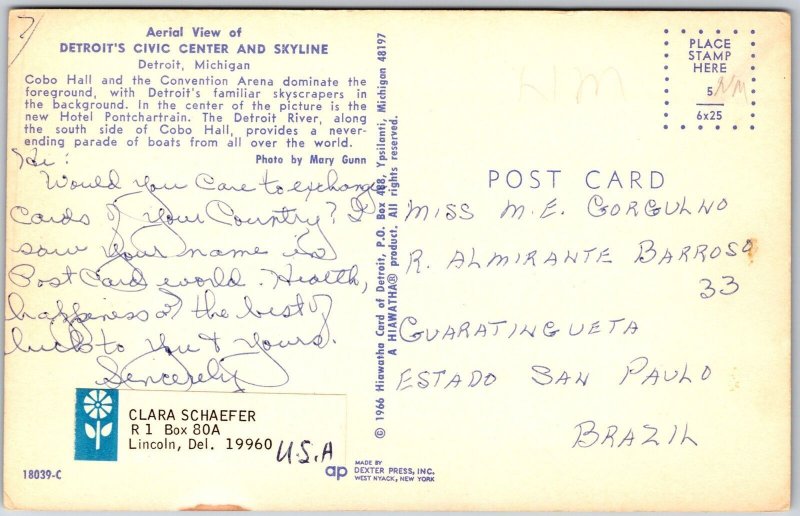 Aerial View of
DETROIT'S CIVIC CENTER AND SKYLINE
Detroit, Michigan
Cobo Hall and the Convention Arena dominate the
foreground, with Detroit's familiar skyscrapers in
the background. In the center of the picture is the
new Hotel Pontchartrain. The Detroit River, along
the south side of Cobo Hall, provides a never-
ending parade of boats from all over the world.
Photo by Mary Gunn
Hi:
Would you care to exchange
Cards of Your Country? I
saw your name in
Post Card world. Health,
happiness & the best of
luck to You & Yours.
Sincerely
CLARA SCHAEFER
R 1 Box 80A
Lincoln, Del. 19960
U.S.A
18039-C
© 1966 Hiawatha Card of Detroit, P.O. Box 488, Ypsilanti, Michigan 48197
A HIAWATHA® product. All rights reserved.
ap
MADE BY
DEXTER PRESS, INC.
WEST NYACK, NEW YORK
PLACE
STAMP
HERE
5
6x25
POST CARD
MISS M.E. GORGULHO
R. ALMIRANTE BARROSO
33
GUARATINGUETA
ESTADO SAN PAULO
BRAZIL